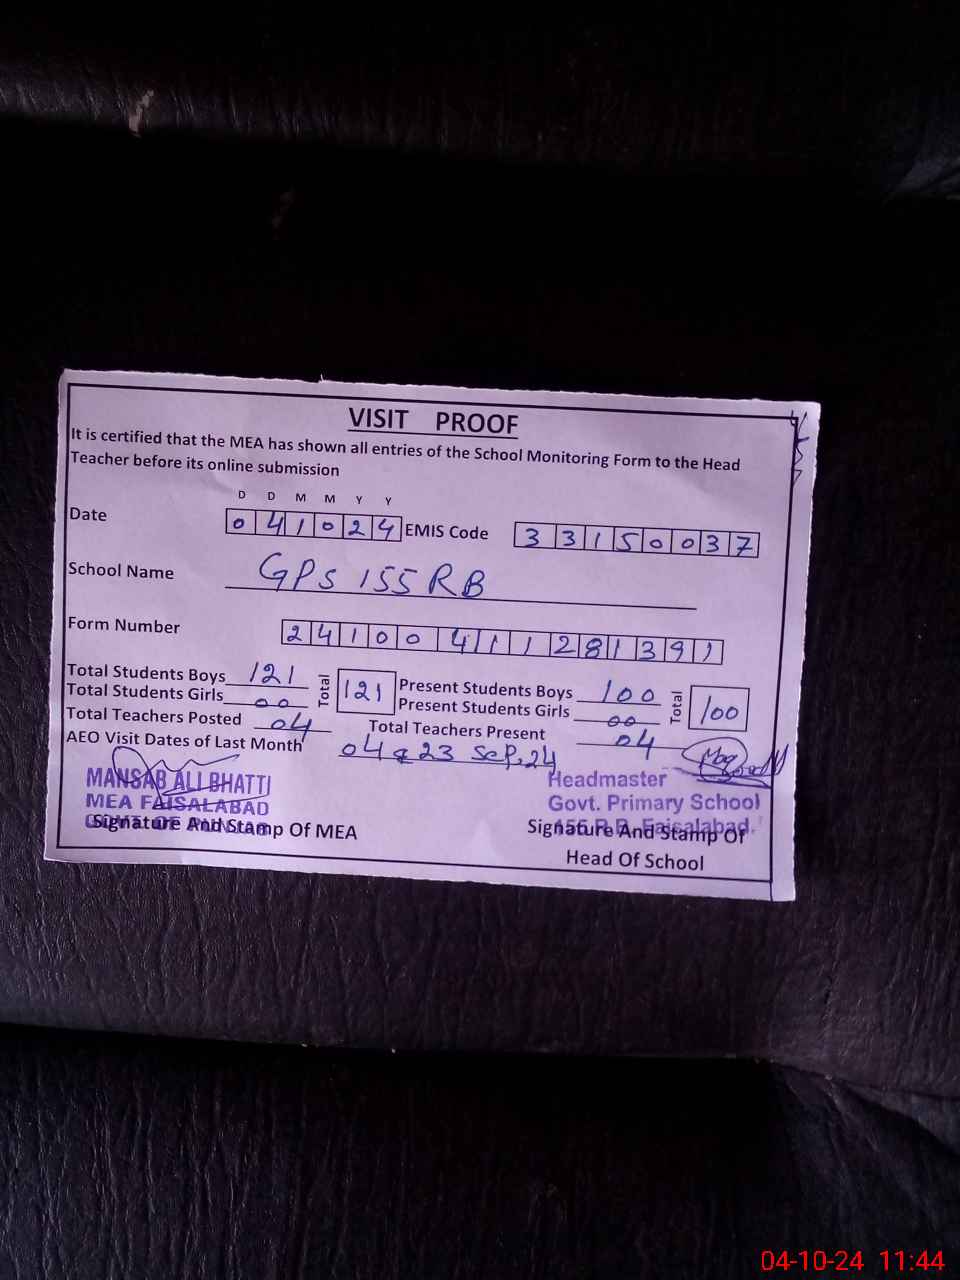 VISIT PROOF
It is certified that the MEA has shown all entries of the School Monitoring Form to the Head
Teacher before its online submission
D D M M Y Y
Date 041024 EMIS Code 33150037
School Name GPS 155 RB
Form Number 24100411281391
Total Students Boys 121 Total 121 Present Students Boys 100 Total 100
Total Students Girls 00 Present Students Girls 00
Total Teachers Posted 04 Total Teachers Present 04
AEO Visit Dates of Last Month 04 & 23 Sep. 24
MANSAB ALI BHATTI
MEA FAISALABAD
Signature And Stamp Of MEA
Headmaster
Govt. Primary School
155 R.B. Faisalabad.
Signature And Stamp Of
Head Of School
04-10-24 11:44